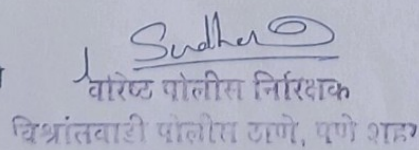 वरिष्ठ पोलीस निरिक्षक
विश्रांतवाडी पोलीस ठाणे, पुणे शहर